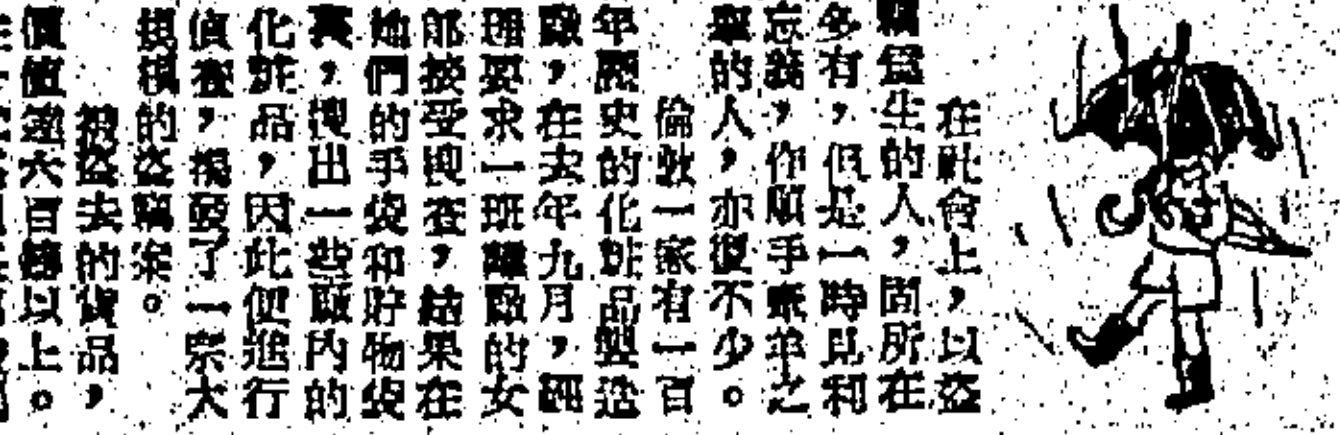 在社會上，以盜
竊爲生的人，固所在
多有，但是一時見利
忘義，作順手牽羊之
舉的人，亦復不少。
倫敦一家有一百
年歷史的化粧品製造
廠，在去年九月，經
理要求一班離廠的女
部接受搜查，結果在
她們的手袋和貯物袋
裏，搜出一些廠內的
化粧品，因此便進行
偵查，揭發了一宗大
規模的盜竊案。
被盜去的貨品，
價值達六百鎊以上。